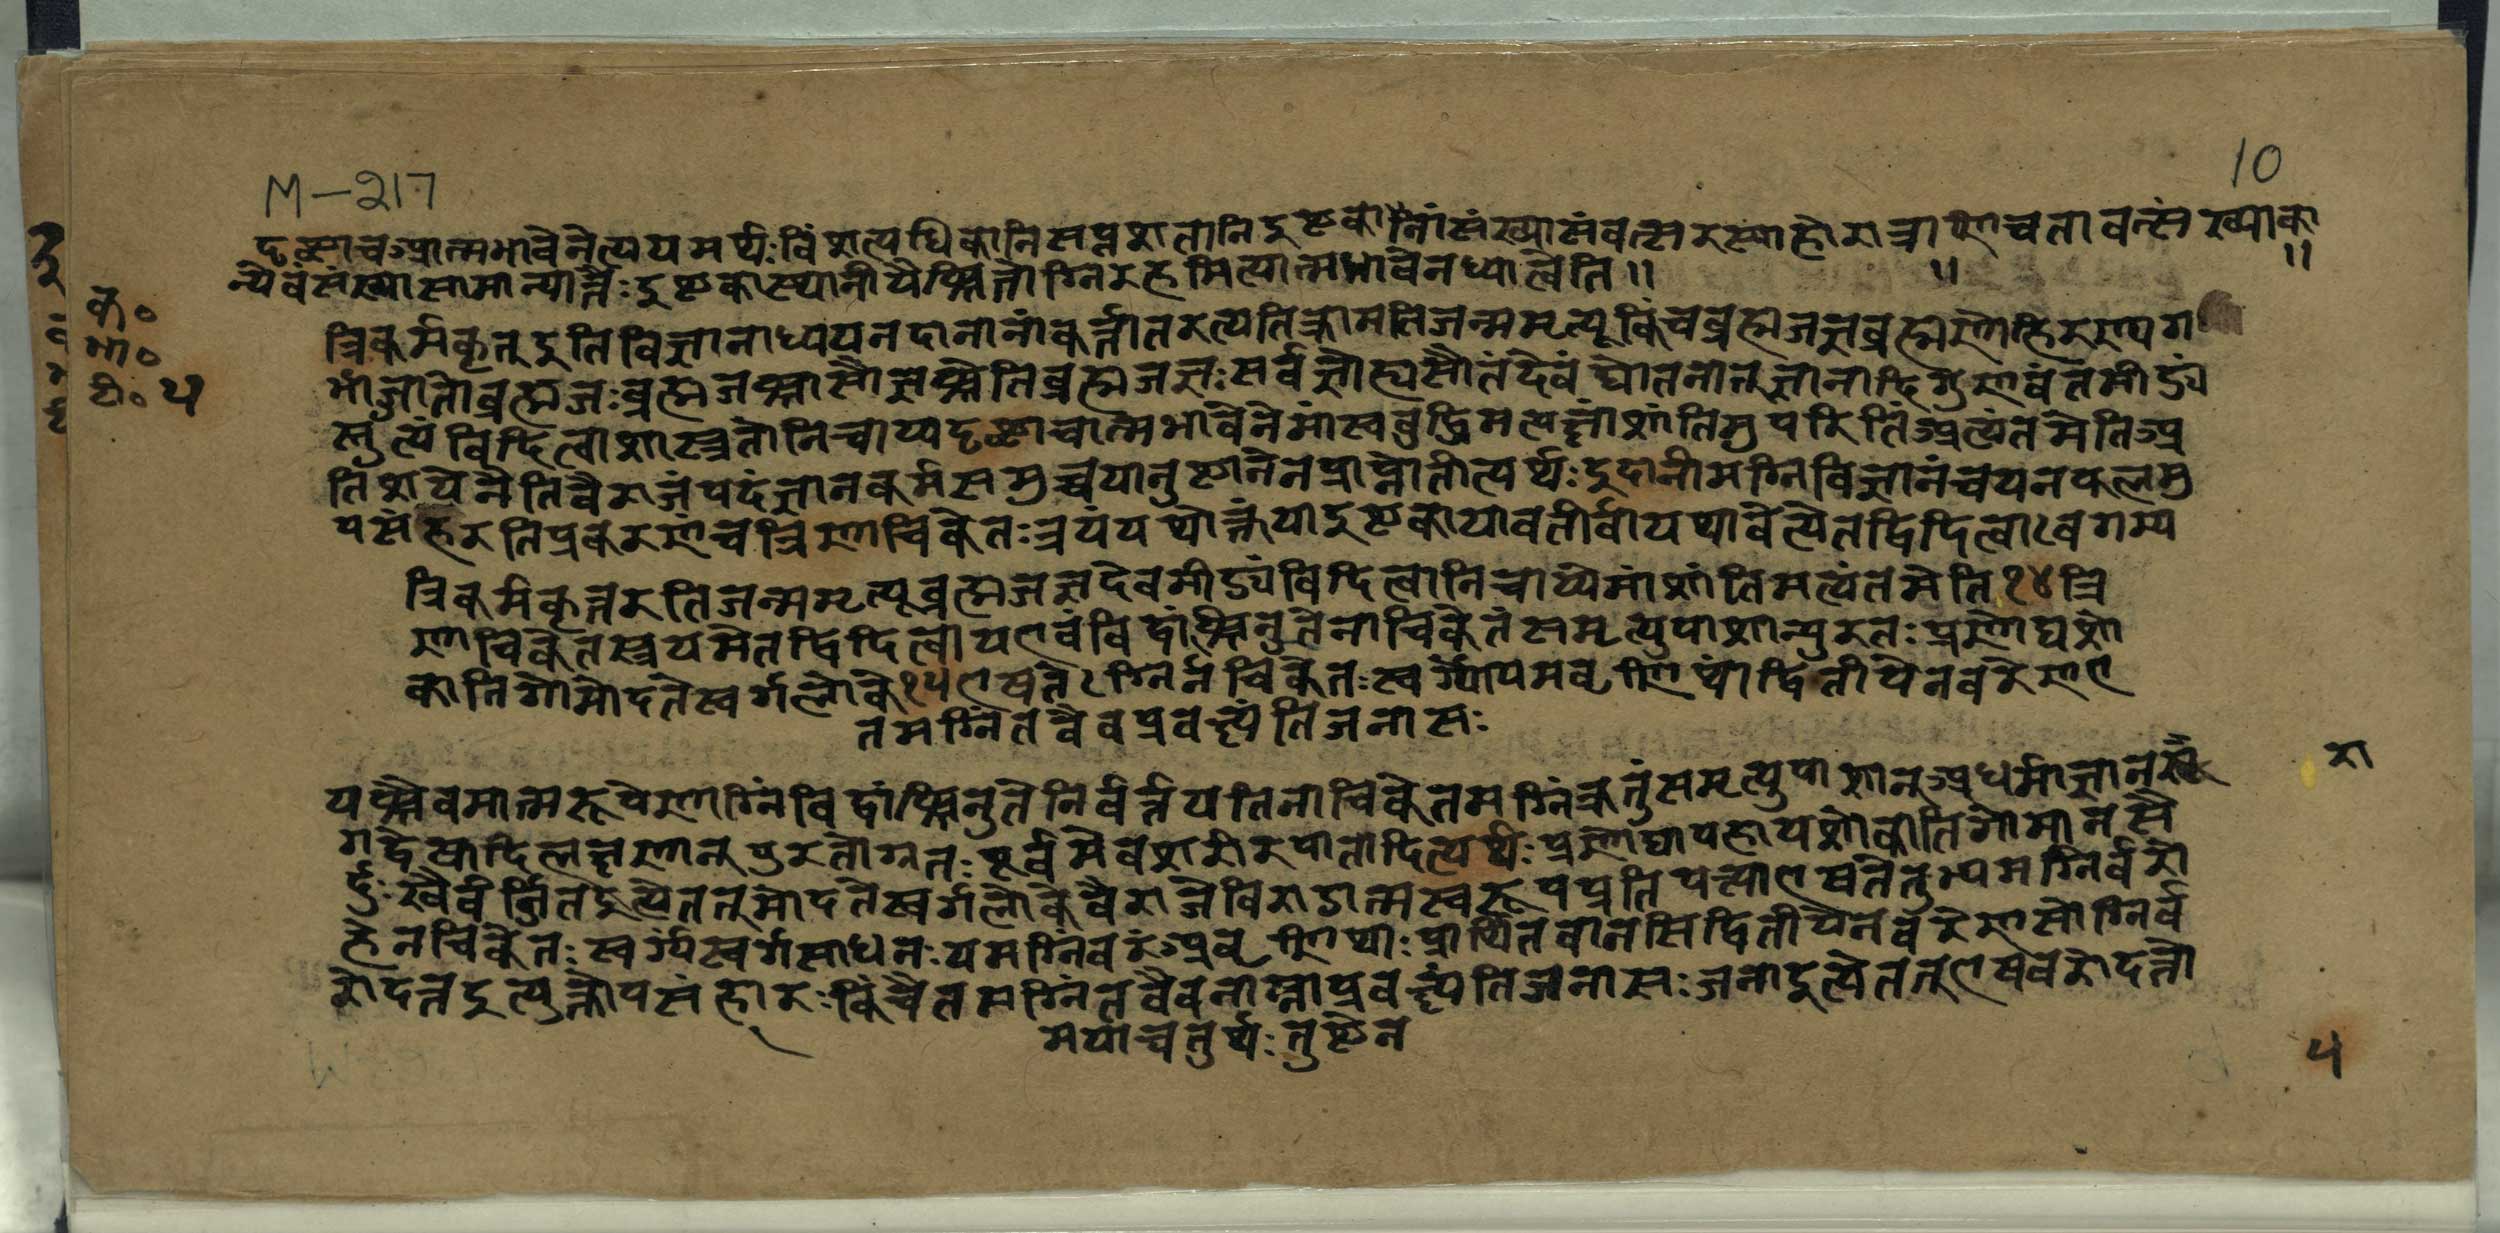 M-217
10
दृष्ट्वाचआत्मभावेनेत्ययमर्थः विंशत्यधिकानिसप्तशतानिइष्टकानांसंख्यासंवत्सरस्याहोरात्राणिचतावत्संख्याका
न्येवंसंख्यासामान्यात्तैः इष्टकास्थानीयैश्चितोग्निरहमित्यात्मभावेनध्यात्वेति॥ ॥ ॥
क॰
भा॰
टी॰ ५
त्रिकर्मकृत्तुइतिविज्ञानाध्ययनदानानांकर्त्तातरत्यतिक्रामतिजन्ममृत्यूकिंचब्रह्मजज्ञब्रह्मणोहिरण्यग
र्भाज्जातोब्रह्मजः ब्रह्मजश्चासौज्ञश्चेतिब्रह्मजज्ञः सर्वज्ञोह्यसौतंदेवंद्योतनात्तुज्ञानादिगुणवंतमीड्यं
स्तुत्यंविदित्वाशास्त्रतोनिचाय्यदृष्ट्वाचात्मभावेनेमांस्वबुद्धिमत्यक्षांशांतिमुपरितिंअत्यंतमेतिअ
तिशयेनेतिवैराजंपदंज्ञानकर्मसमुच्चयानुष्ठानेनप्राप्नोतीत्यर्थः इदानीमग्निविज्ञानंचयनफलमु
पसंहरतिप्रकरणंचत्रिणाचिकेतः त्रयंयथोक्तंयाइष्टकायावतीर्वायथावेत्येतद्विदित्वावगम्य
त्रिकर्मकृत्तरतिजन्ममृत्यूब्रह्मजज्ञदेवमीड्यंविदित्वानिचाय्येमांशांतिमत्यंतमेति१४त्रि
णाचिकेतस्त्रयमेतद्विदित्वायएवंविद्वांश्चिनुतेनाचिकेतंसमृत्युपाशान्पुरतः प्रणोद्यशो
कातिगोमोदतेस्वर्गलोके१५एषतेग्निर्नचिकेतः स्वर्ग्योयमवृणीथाद्वितीयेनवरेणए
तमग्निंतवैवप्रवक्ष्यंतिजनासः
यश्चैवमात्मरूपेणाग्निंविद्वांश्चिनुतेनिर्वर्त्तयतिनाचिकेतमग्निंक्रतुंसमृत्युपाशान्अधर्माज्ञान
रा
गद्वेषादिलक्षणान्पुरतोग्रतः पूर्वमेवशरीरपातादित्यर्थः प्रणोद्यापहायशोकातिगोमानसै
र्दुः खैर्वर्जितइत्येतत्तुमोदतेस्वर्गलोकेवैराजेविराडात्मस्वरूपप्रतिपत्त्याएषतेतुभ्यमग्निर्वरो
हेनचिकेतः स्वर्ग्यस्वर्गसाधनः यमग्निंवरंअवृणीथाः प्रार्थितवानसिद्वितीयेनवरेणसोग्निर्व
रोदत्तइत्युक्तोपसंहारः किंचैतमग्निंतवैवनाम्नाप्रवक्ष्यंतिजनासः जनाइत्येतत्तुएषवरोदत्तो
मयाचतुर्थः तुष्टेन
५